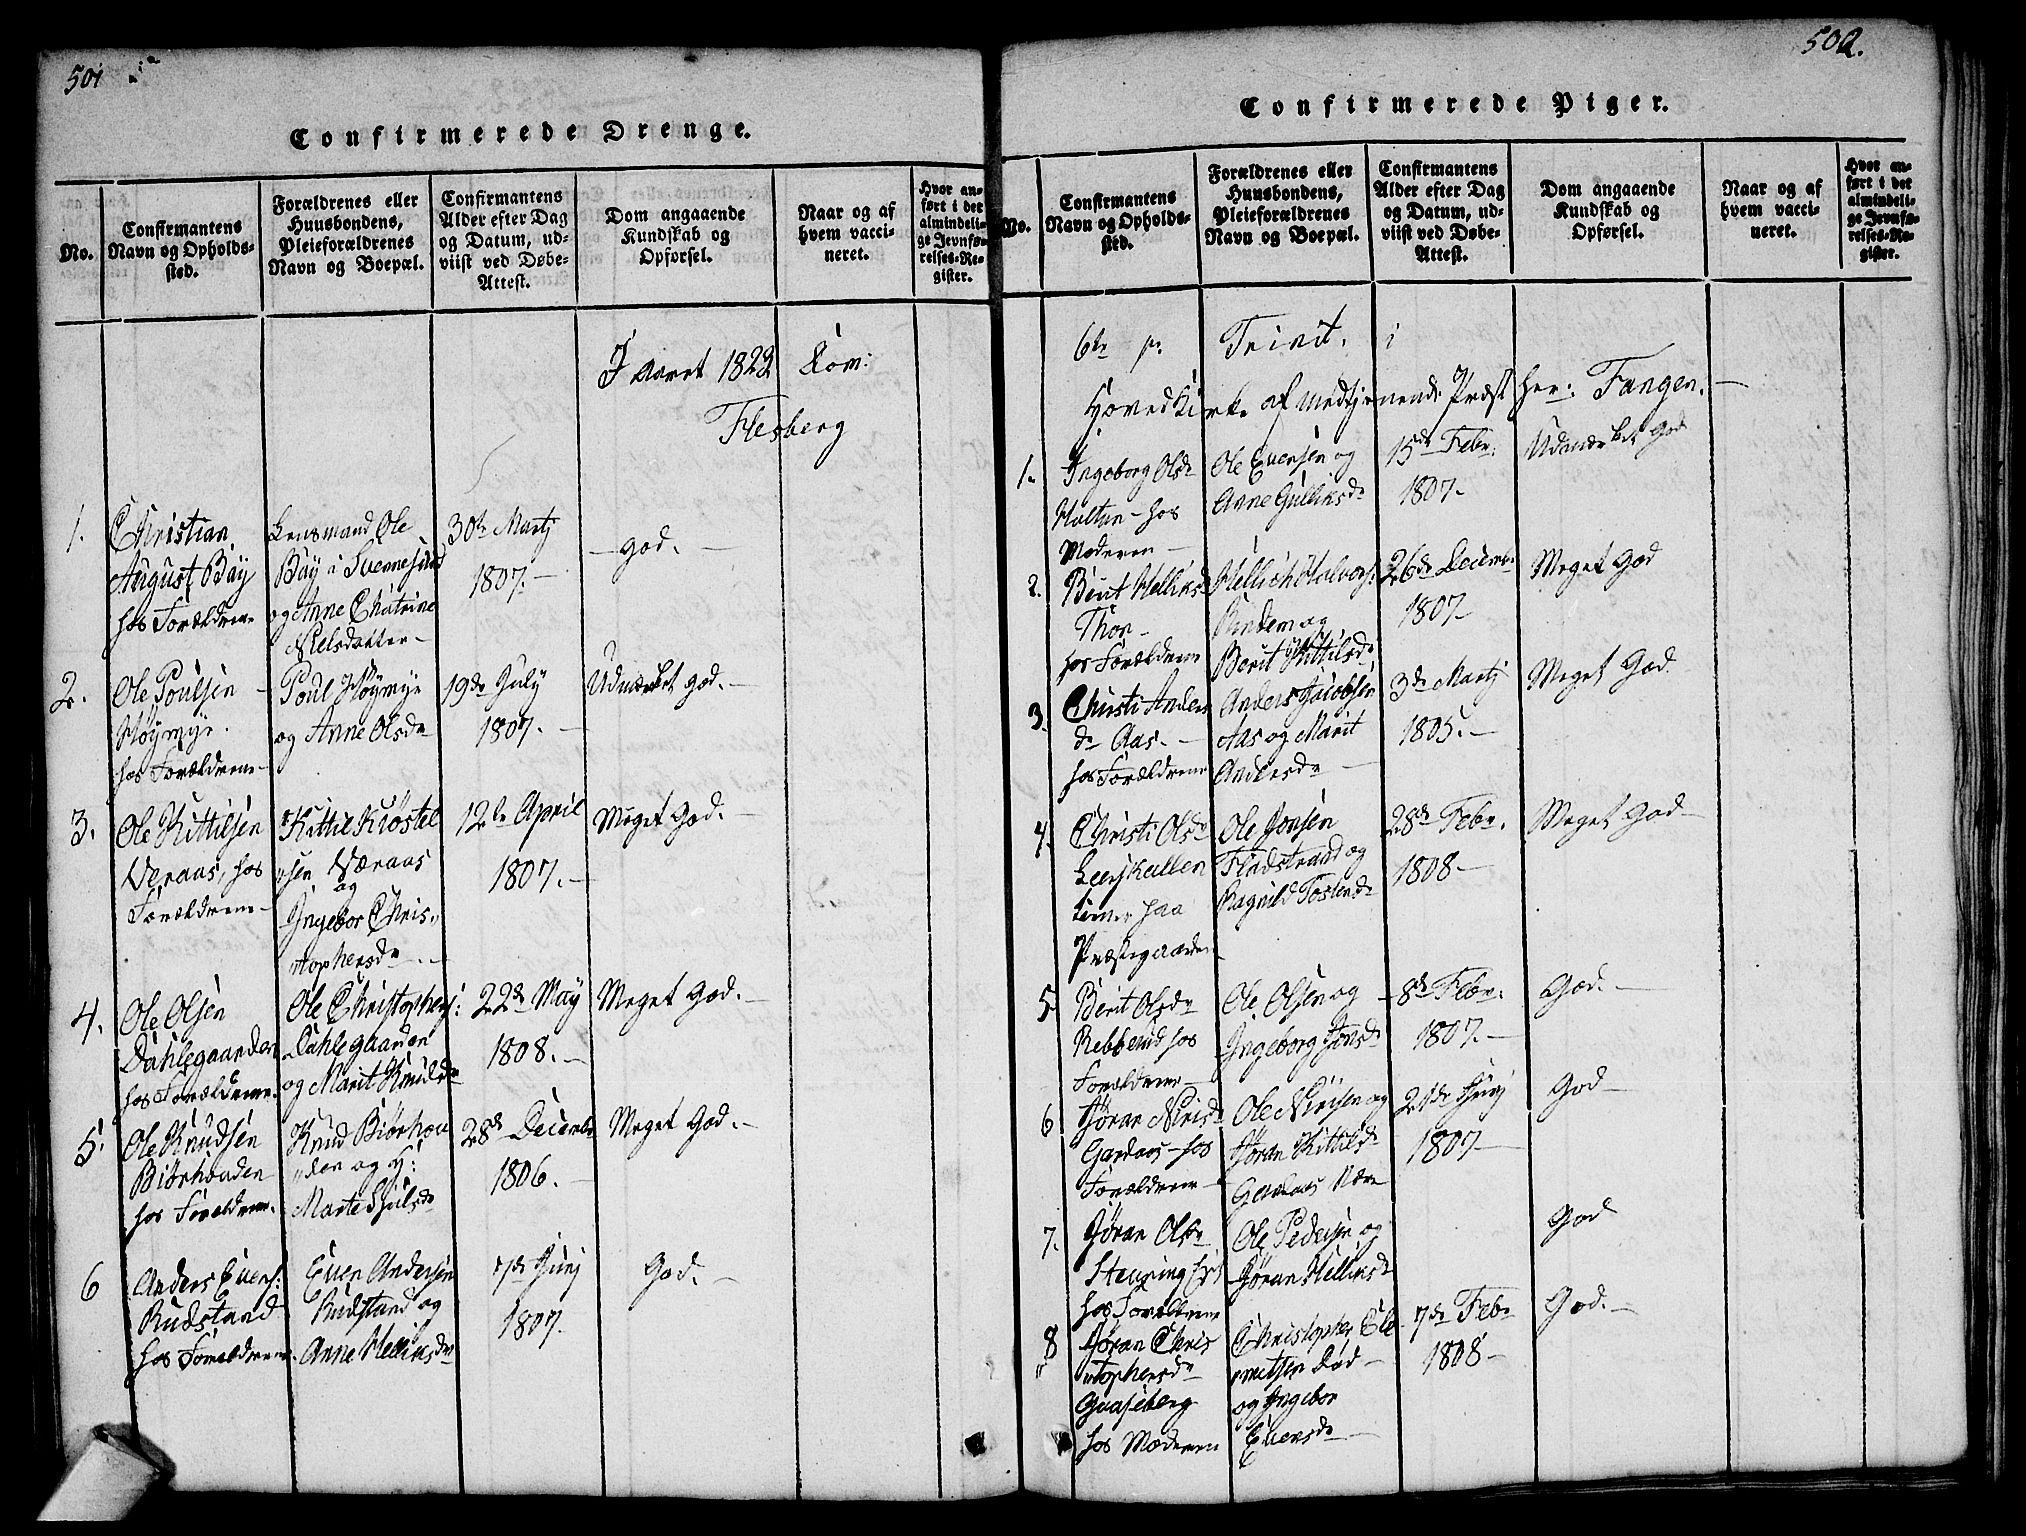 501
Confirmerede Drenge.
No.
Confirmantens
Navn og Opholds-
sted.
Forældrenes eller
Huusbondens,
Pleieforældrenes
Navn og Boepæl.
Confirmantens
Alder efter Dag
og Datum, ud-
viist ved Døbe-
Attest.
Dom angaaende
Kundskab og
Opførsel.
Naar og af
hvem vacci-
neret.
Hvor an-
ført i det
almindeli-
ge Jevnfø-
relses-Re-
gister.
I Aaret 1822 Dom:
Flesberg
1.
Christian
August Bay
hos Forældrene
Lensmand Ole
Bay i Svennesund
og Anne Chatrine
Nielsdatter -
30te Martj
1807. -
- god. -
2.
Ole Poulsen -
Høymyr.
hos Forældrene -
Poul Høymyr
og Anne Olsdr
19de July
1807. -
Udmærket god. -
3.
Ole Kittilsen
Veraas, hos
Forældrene -
Kittil Kiøstel
sen Væraas
og
Ingebor Chris,,
,,tophersdr -
12te April
1807. -
Meget God. -
4.
Ole Olsen
Dahlegaarden
hos Forældrene.
Ole Christophers:
Dahlegaarden
og Marit Knudsdr
22de May
1808. -
Meget God. -
5.
Ole Knudsen
Biørhouden
hos Forældrene.
Knud Biørhou
,,den og H:
Marte Hjulsdr
28de Decembr
1806. -
Meget God. -
6
Anders Evens:
Rudstand
hos Forældrene.
Even Andersen
Rudstand og
Anne Hellinsdr
7de Junj
1807.
God. -
502.
Confirmerede Piger.
No.
Confirmantens
Navn og Opholds-
sted.
Forældrenes eller
Huusbondens,
Pleieforældrenes
Navn og Boepæl.
Confirmantens
Alder efter Dag
og Datum, ud-
viist ved Døbe-
Attest.
Dom angaaende
Kundskab og
Opførsel.
Naar og af
hvem vacci-
neret.
Hvor an-
ført i det
almindeli-
ge Jevnfø-
relses-Re-
gister.
6te p. Trinit. i
Hovedkirke af medtjenende Præst Her: Fangen. -
1.
Ingeborg Olsdr
Holtun - hos
Moderen -
Ole Evensen og
Anne Gulliksdr
15de Febr:
1807. -
Udmærket God
2.
Berit Hellinsdr
Thon -
hos Forældrene
Hellich Halvors:
Rinden og
Berit Kittilsdr
26de Decembr
1807 -
Meget God
3.
Christi Anders
dr Aas. -
hos Forældrene
Anders Jacobsen
Aas og Marit
Andersdr
3de Martj
1805. -
Meget God
4.
Christi Olsdr
Leerskallen
tiener paa
Præstegaarden
Ole Jonsen
Fladstrand og
Ragnild Tostensdr
28de Febr.
1808 -
Meget God -
5
Berit Olsdr
Rebberud hos
Forældrene -
Ole Olsen og
Ingeborg Jonsdr
8de Febr.
1807. -
God. -
6
Jøran Nirisdr
Gardaas - hos
Forældrene -
Ole Nirisen og
Jøran Kittilsdr
Gardaas
21de Junj
1807 -
God -
7.
Jøran Olsdr
hos Forældrene
Ole Pedersen og
Jøran Hellinsdr
God
8
Jøran Chris
,,tophersdr
Gaaseberg
hos Moderen
Christopher Cle
,,metsen Død -
og Ingebor
Evensdr -
7de Febr
1808 -
God. -